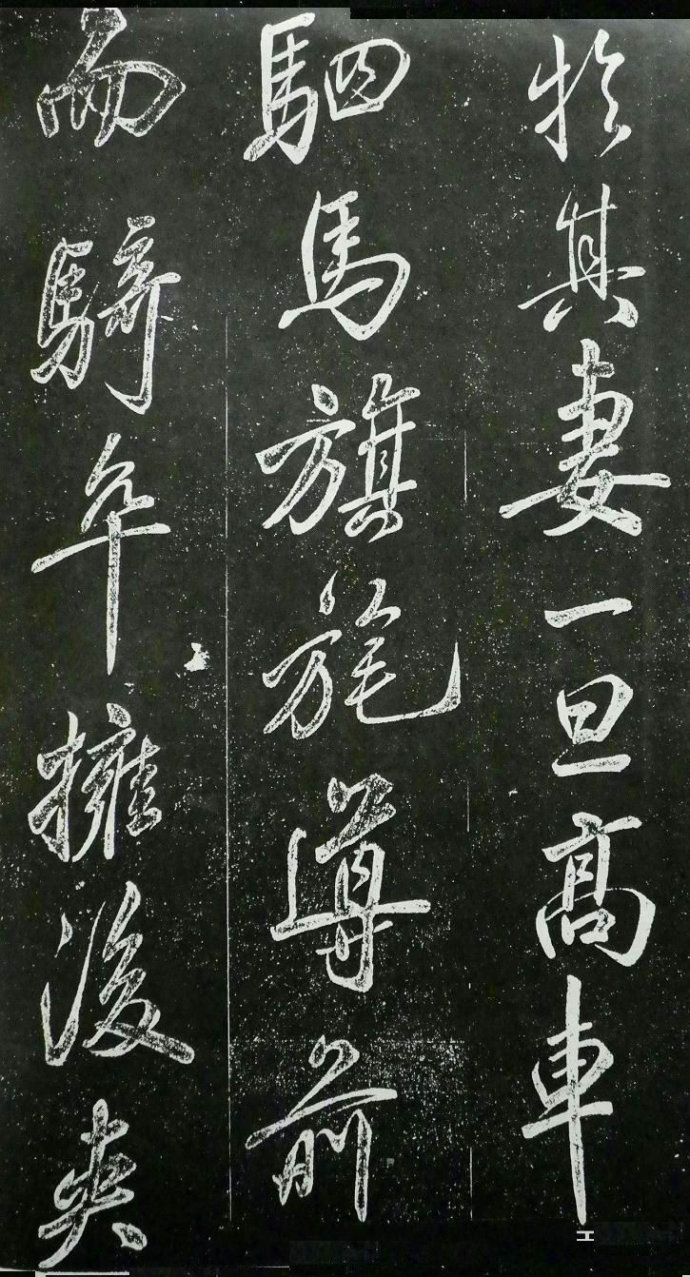 於其妻一旦高車
駟馬旗旄導前
而騎卒擁後夾